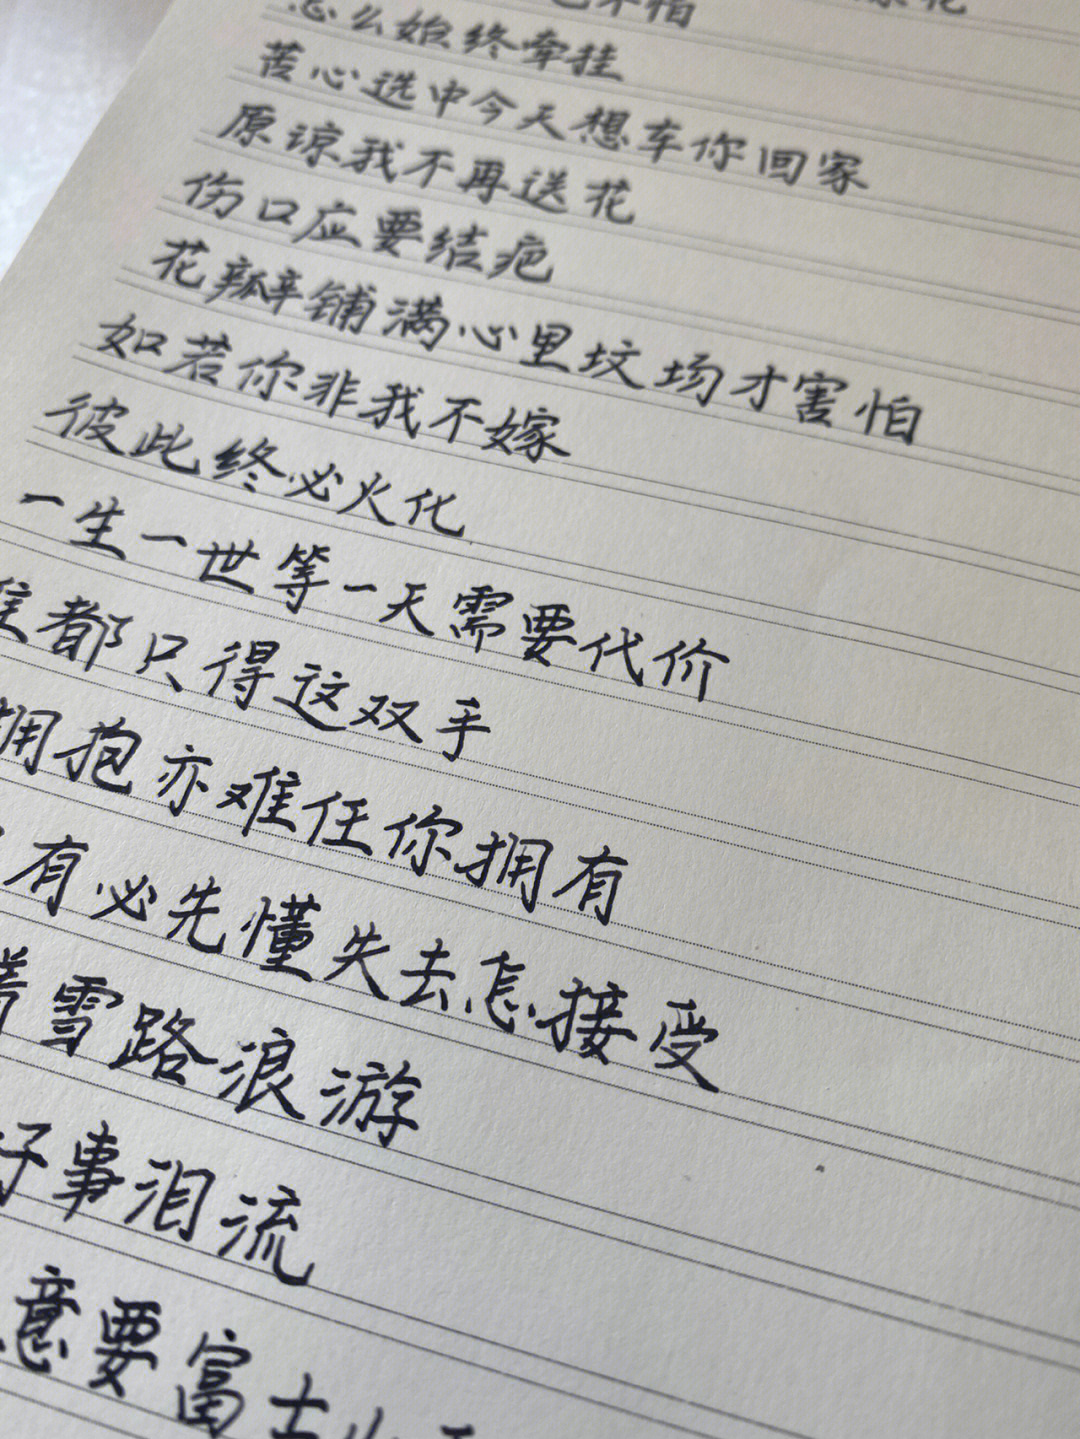 怎么始终牵挂
苦心选中今天想车你回家
原谅我不再送花
伤口应要结疤
花瓣铺满心里坟场才害怕
如若你非我不嫁
彼此终必火化
一生一世等一天需要代价
谁都只得这双手
拥抱亦难任你拥有
有必先懂失去怎接受
着雪路浪游
好事泪流
意要富士山